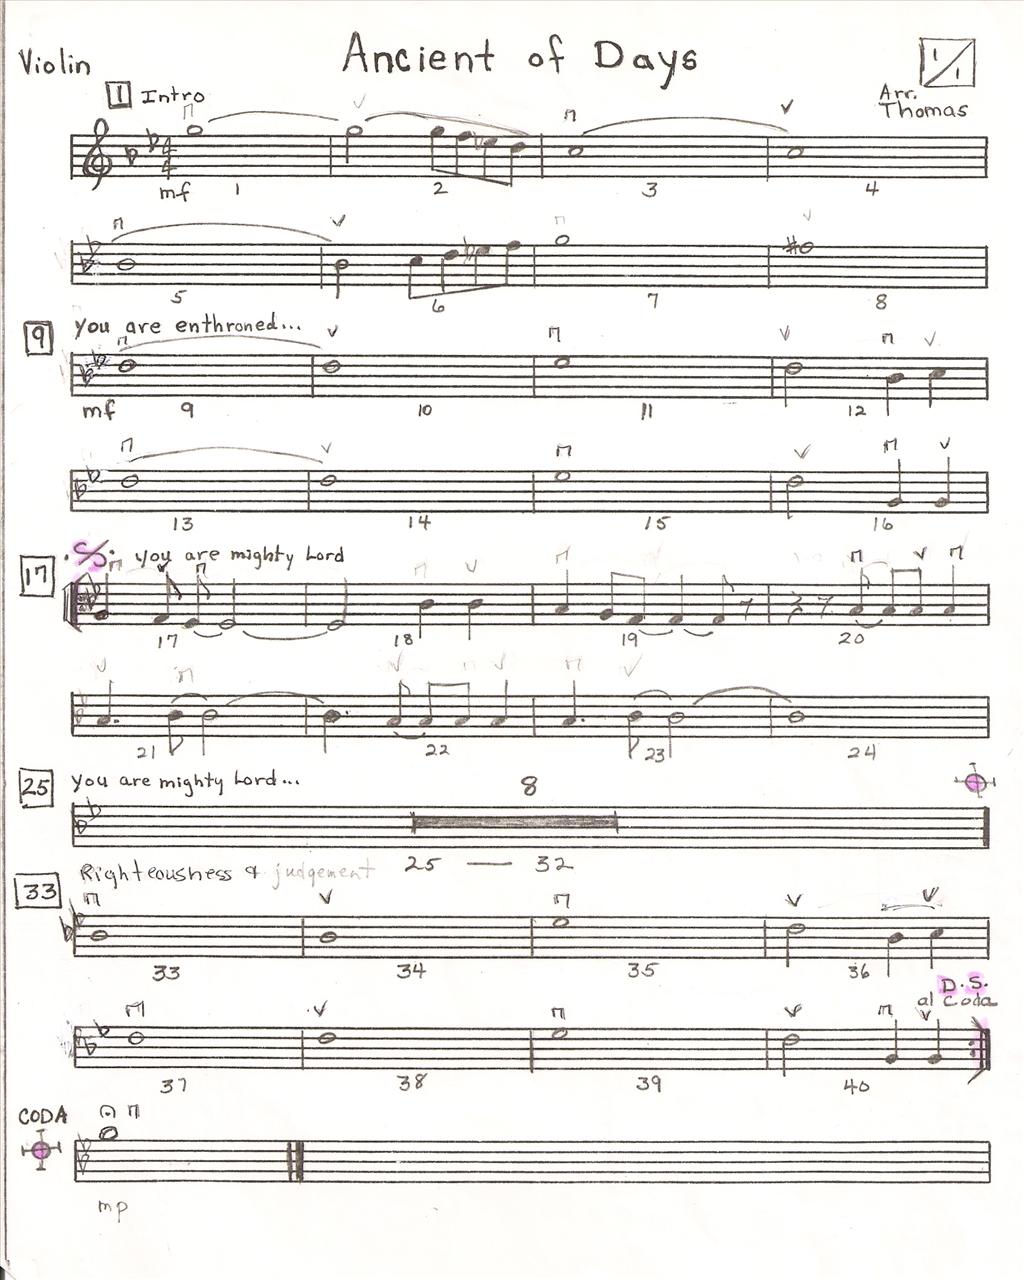 Violin
Ancient of Days
1/1
Arr.
Thomas
1 Intro
4
4
mf 1 2 3 4
5 6 7 8
9 you are enthroned...
mf 9 10 11 12
13 14 15 16
17 you are mighty Lord
17 18 19 20
21 22 23 24
25 you are mighty Lord... 8
25 — 32
Righteousness & judgement
33
33 34 35 36
D.S.
al Coda
37 38 39 40
CODA
mp